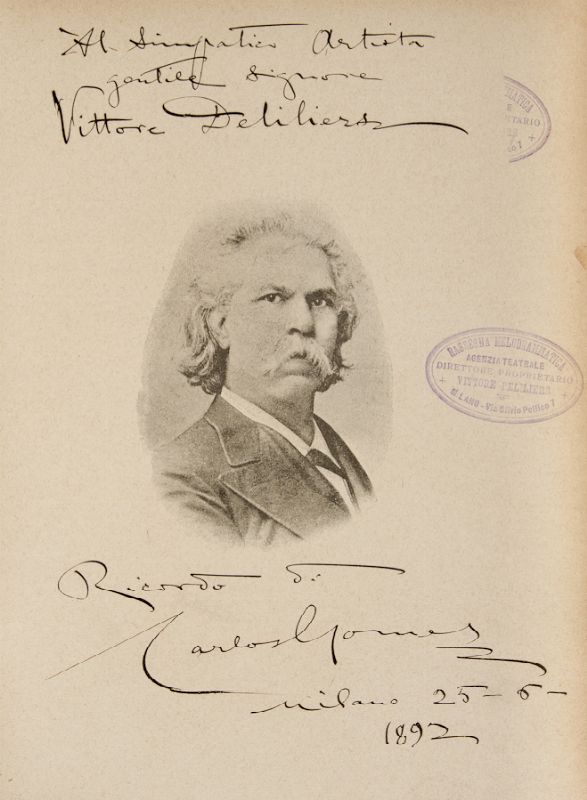 Al Simpatico Artista
gentile Signore
Vittore Deliliers
RATICA
E
ETARIO
RASSEGNA MELODRAMMATICA
AGENZIA TEATRALE
DIRETTORE PROPRIETARIO
VITTORE DELILIERS
MILANO - Via Silvio Pellico 7
Ricordo di
Carlos Gomes
Milano 25-6-
1892